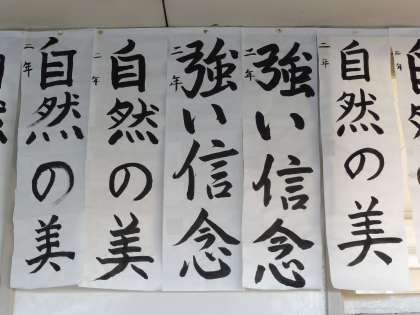 自然の美
二年
自然の美
二年
強い信念
二年
強い信念
二年
自然の美
二年
自然の美
二年